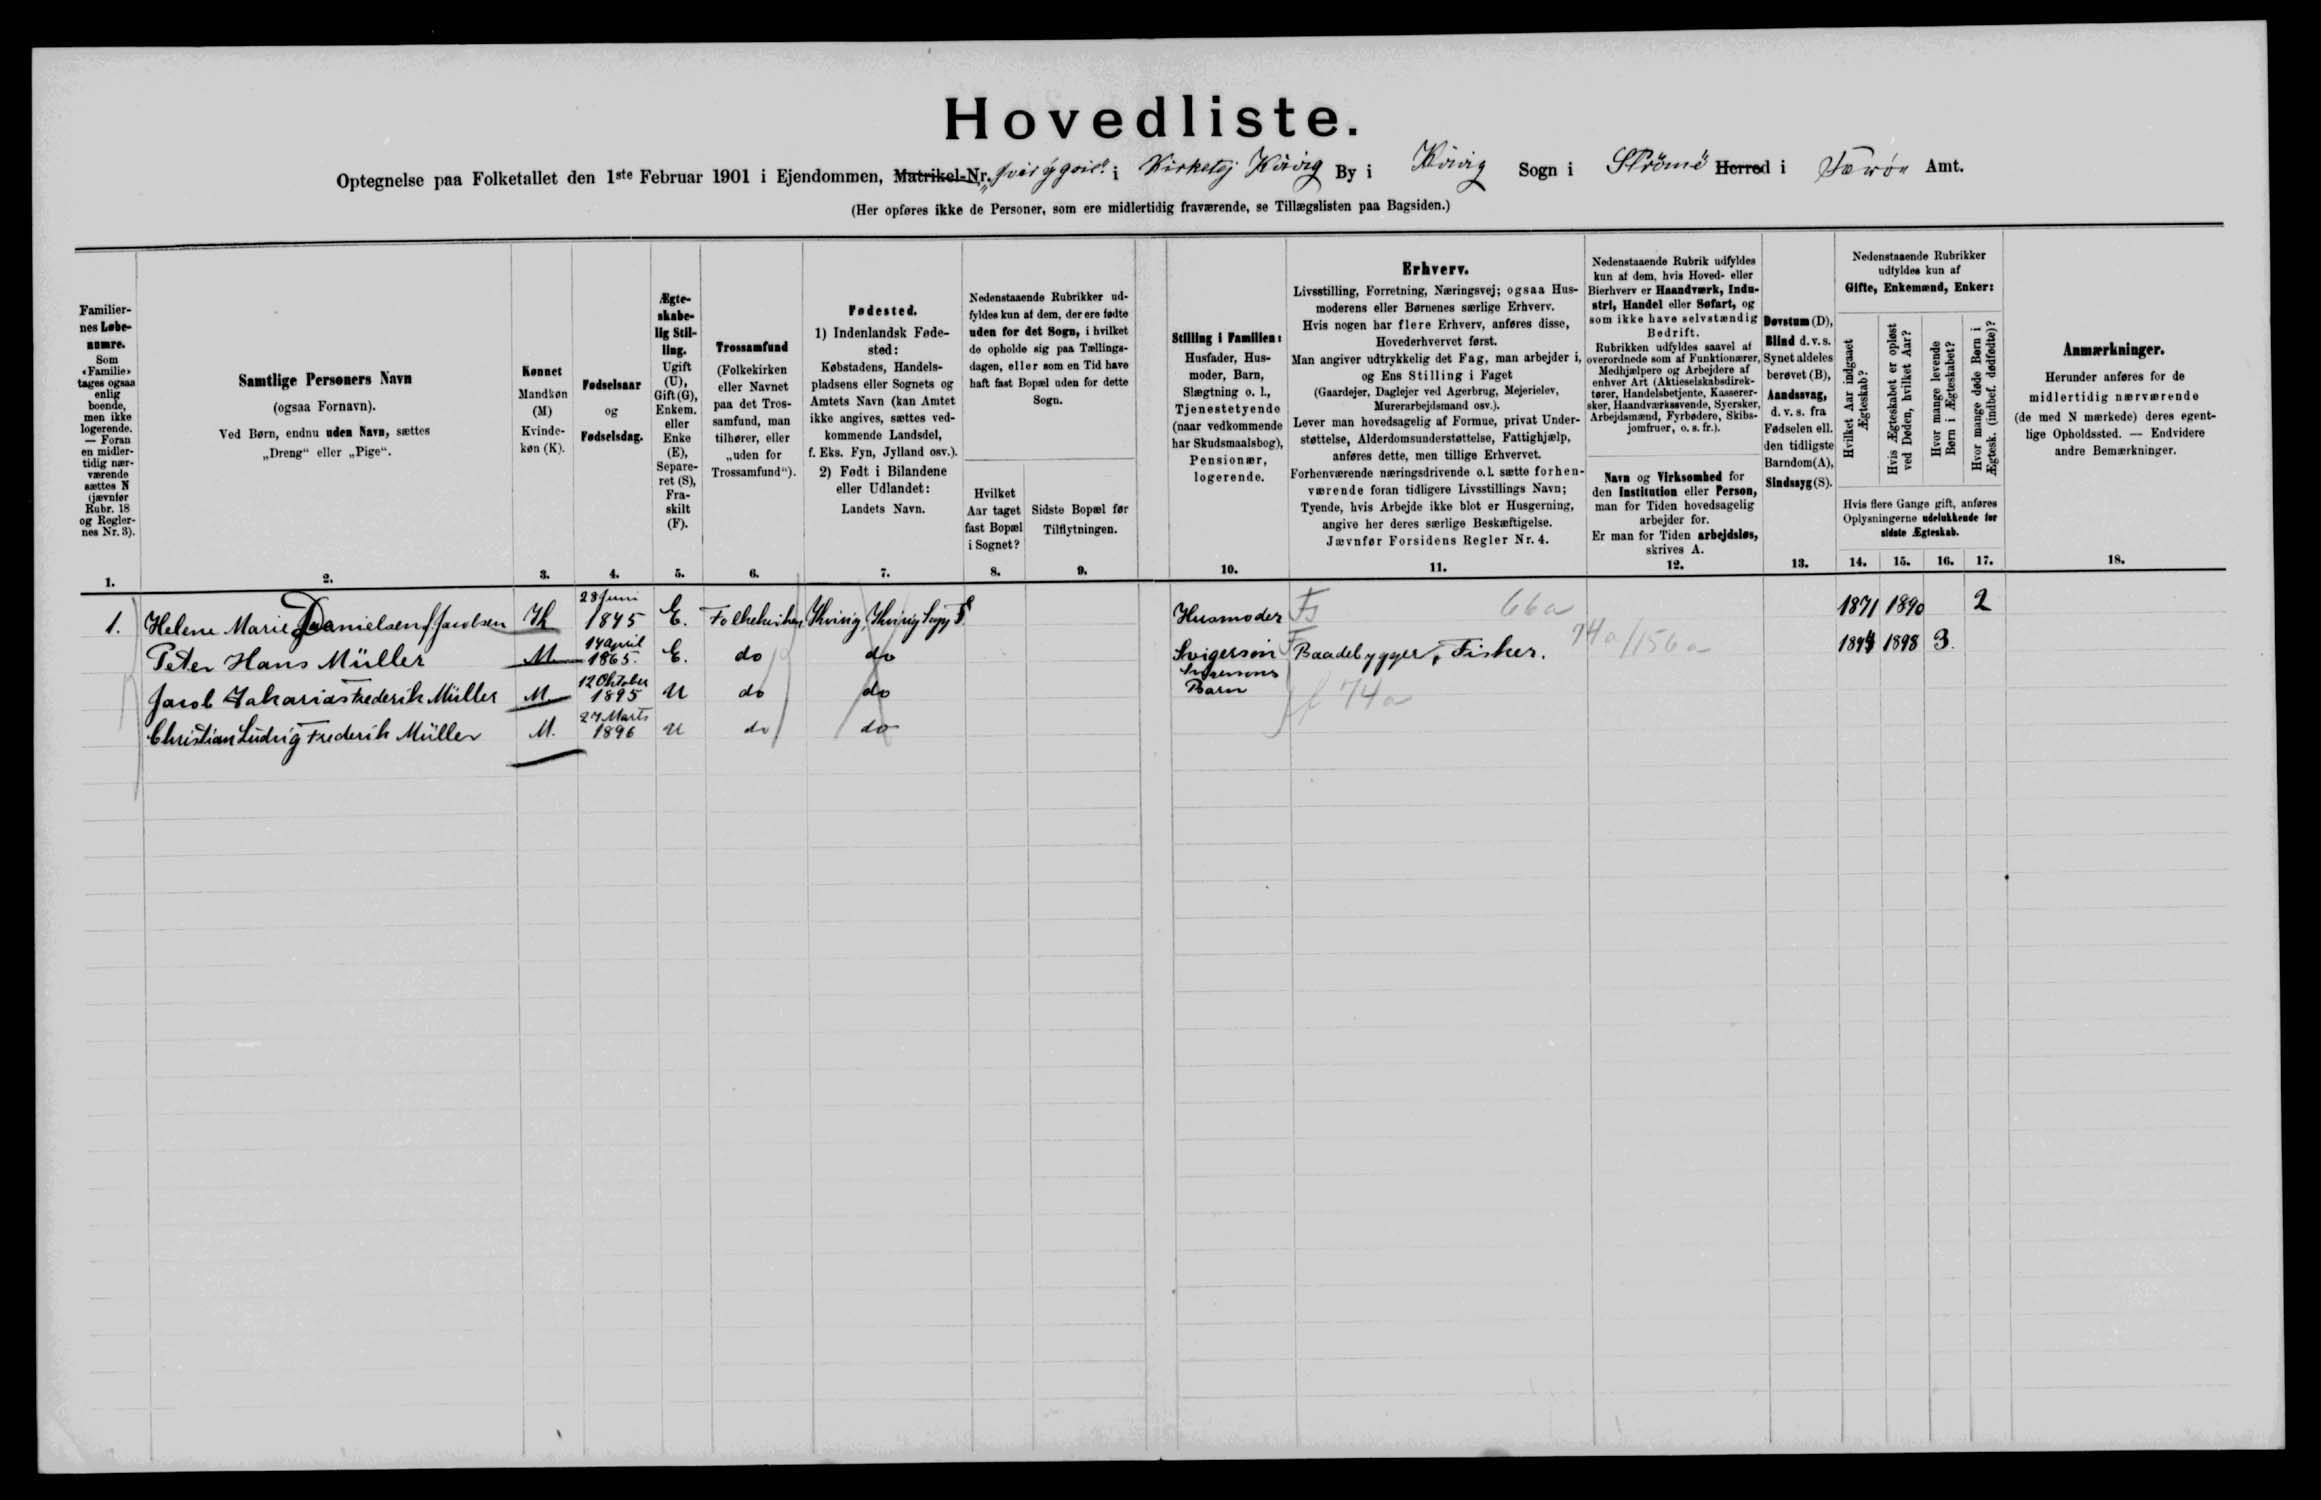 Hovedliste.
Optegnelse paa Folketallet den 1ste Februar 1901 i Ejendommen, Matrikel-Nr. i Kirkebÿ Kvivig By i Kvivig Sogn i Strömö Herred i Færöe Amt.
(Her opføres ikke de Personer, som ere midlertidig fraværende, se Tillægslisten paa Bagsiden.)
Familiernes Løbenumre.
Som «Familie» tages ogsaa enlig boende, men ikke logerende. — Foran en midlertidig nærværende sættes N (jævnfør Rubr. 18 og Reglernes Nr. 3).
1.
Samtlige Personers Navn
(ogsaa Fornavn).
Ved Børn, endnu uden Navn, sættes
„Dreng“ eller „Pige“.
2.
Kønnet
Mandkøn
(M)
Kvinde-
køn (K).
3.
Fødselsaar
og
Fødselsdag.
4.
Ægte-
skabe-
lig Stil-
ling.
Ugift
(U),
Gift (G),
Enkem.
eller
Enke
(E),
Separe-
ret (S),
Fra-
skilt
(F).
5.
Trossamfund
(Folkekirken
eller Navnet
paa det Tros-
samfund, man
tilhører, eller
„uden for
Trossamfund“).
6.
Fødested.
1) Indenlandsk Føde-
sted:
Købstadens, Handels-
pladsens eller Sognets og
Amtets Navn (kan Amtet
ikke angives, sættes ved-
kommende Landsdel,
f. Eks. Fyn, Jylland osv.).
2) Født i Bilandene
eller Udlandet:
Landets Navn.
7.
Nedenstaaende Rubrikker ud-
fyldes kun af dem, der ere fødte
uden for det Sogn, i hvilket
de opholde sig paa Tællings-
dagen, eller som en Tid have
haft fast Bopæl uden for dette
Sogn.
Hvilket
Aar taget
fast Bopæl
i Sognet?
8.
Sidste Bopæl før
Tilflytningen.
9.
Stilling i Familien:
Husfader, Hus-
moder, Barn,
Slægtning o. l.,
Tjenestetyende
(naar vedkommende
har Skudsmaalsbog),
Pensionær,
logerende.
10.
Erhverv.
Livsstilling, Forretning, Næringsvej; ogsaa Hus-
moderens eller Børnenes særlige Erhverv.
Hvis nogen har flere Erhverv, anføres disse,
Hovederhvervet først.
Man angiver udtrykkelig det Fag, man arbejder i,
og Ens Stilling i Faget
(Gaardejer, Daglejer ved Agerbrug, Mejerielev,
Murerarbejdsmand osv.).
Lever man hovedsagelig af Formue, privat Under-
støttelse, Alderdomsunderstøttelse, Fattighjælp,
anføres dette, men tillige Erhvervet.
Forhenværende næringsdrivende o. l. sætte forhen-
værende foran tidligere Livsstillings Navn;
Tyende, hvis Arbejde ikke blot er Husgerning,
angive her deres særlige Beskæftigelse.
Jævnfør Forsidens Regler Nr. 4.
11.
Nedenstaaende Rubrik udfyldes
kun af dem, hvis Hoved- eller
Bierhverv er Haandværk, Indu-
stri, Handel eller Søfart, og
som ikke have selvstændig
Bedrift.
Rubrikken udfyldes saavel af
overordnede som af Funktionærer,
Medhjælpere og Arbejdere af
enhver Art (Aktieselskabsdirek-
tører, Handelsbetjente, Kasserer-
sker, Haandværkssvende, Syersker,
Arbejdsmænd, Fyrbødere, Skibs-
jomfruer, o. s. fr.).
Navn og Virksomhed for
den Institution eller Person,
man for Tiden hovedsagelig
arbejder for.
Er man for Tiden arbejdsløs,
skrives A.
12.
Døvstum (D),
Blind d. v. s.
Synet aldeles
berøvet (B),
Aandssvag,
d. v. s. fra
Fødselen ell.
den tidligste
Barndom (A),
Sindssyg (S).
13.
Nedenstaaende Rubrikker
udfyldes kun af
Gifte, Enkemænd, Enker:
Hvilket Aar indgaaet
Ægteskab?
Hvis Ægteskabet er opløst
ved Døden, hvilket Aar?
Hvor mange levende
Børn i Ægteskabet?
Hvor mange døde Børn i
Ægtesk. (indbef. dødfødte)?
Hvis flere Gange gift, anføres
Oplysningerne udelukkende for
sidste Ægteskab.
14. 15. 16. 17.
Anmærkninger.
Herunder anføres for de
midlertidig nærværende
(de med N mærkede) deres egent-
lige Opholdssted. — Endvidere
andre Bemærkninger.
18.
1. Helene Marie Danielsen f Jacobsen K 28 Juni 1845 E. Folkekirken Kvivig, Kvivig Husmoder 66a 1871 1890 2
Peter Hans Müller M 14 April 1865. E. do do Svigersön Baadebygger, Fisker. 74a/156a 1894 1898 3.
Jacob Zakarias Frederik Müller M 12 Oktober 1895 U do do Svigersöns Barn 74a
Christian Ludvig Frederik Müller M. 27 Marts 1896 U do do